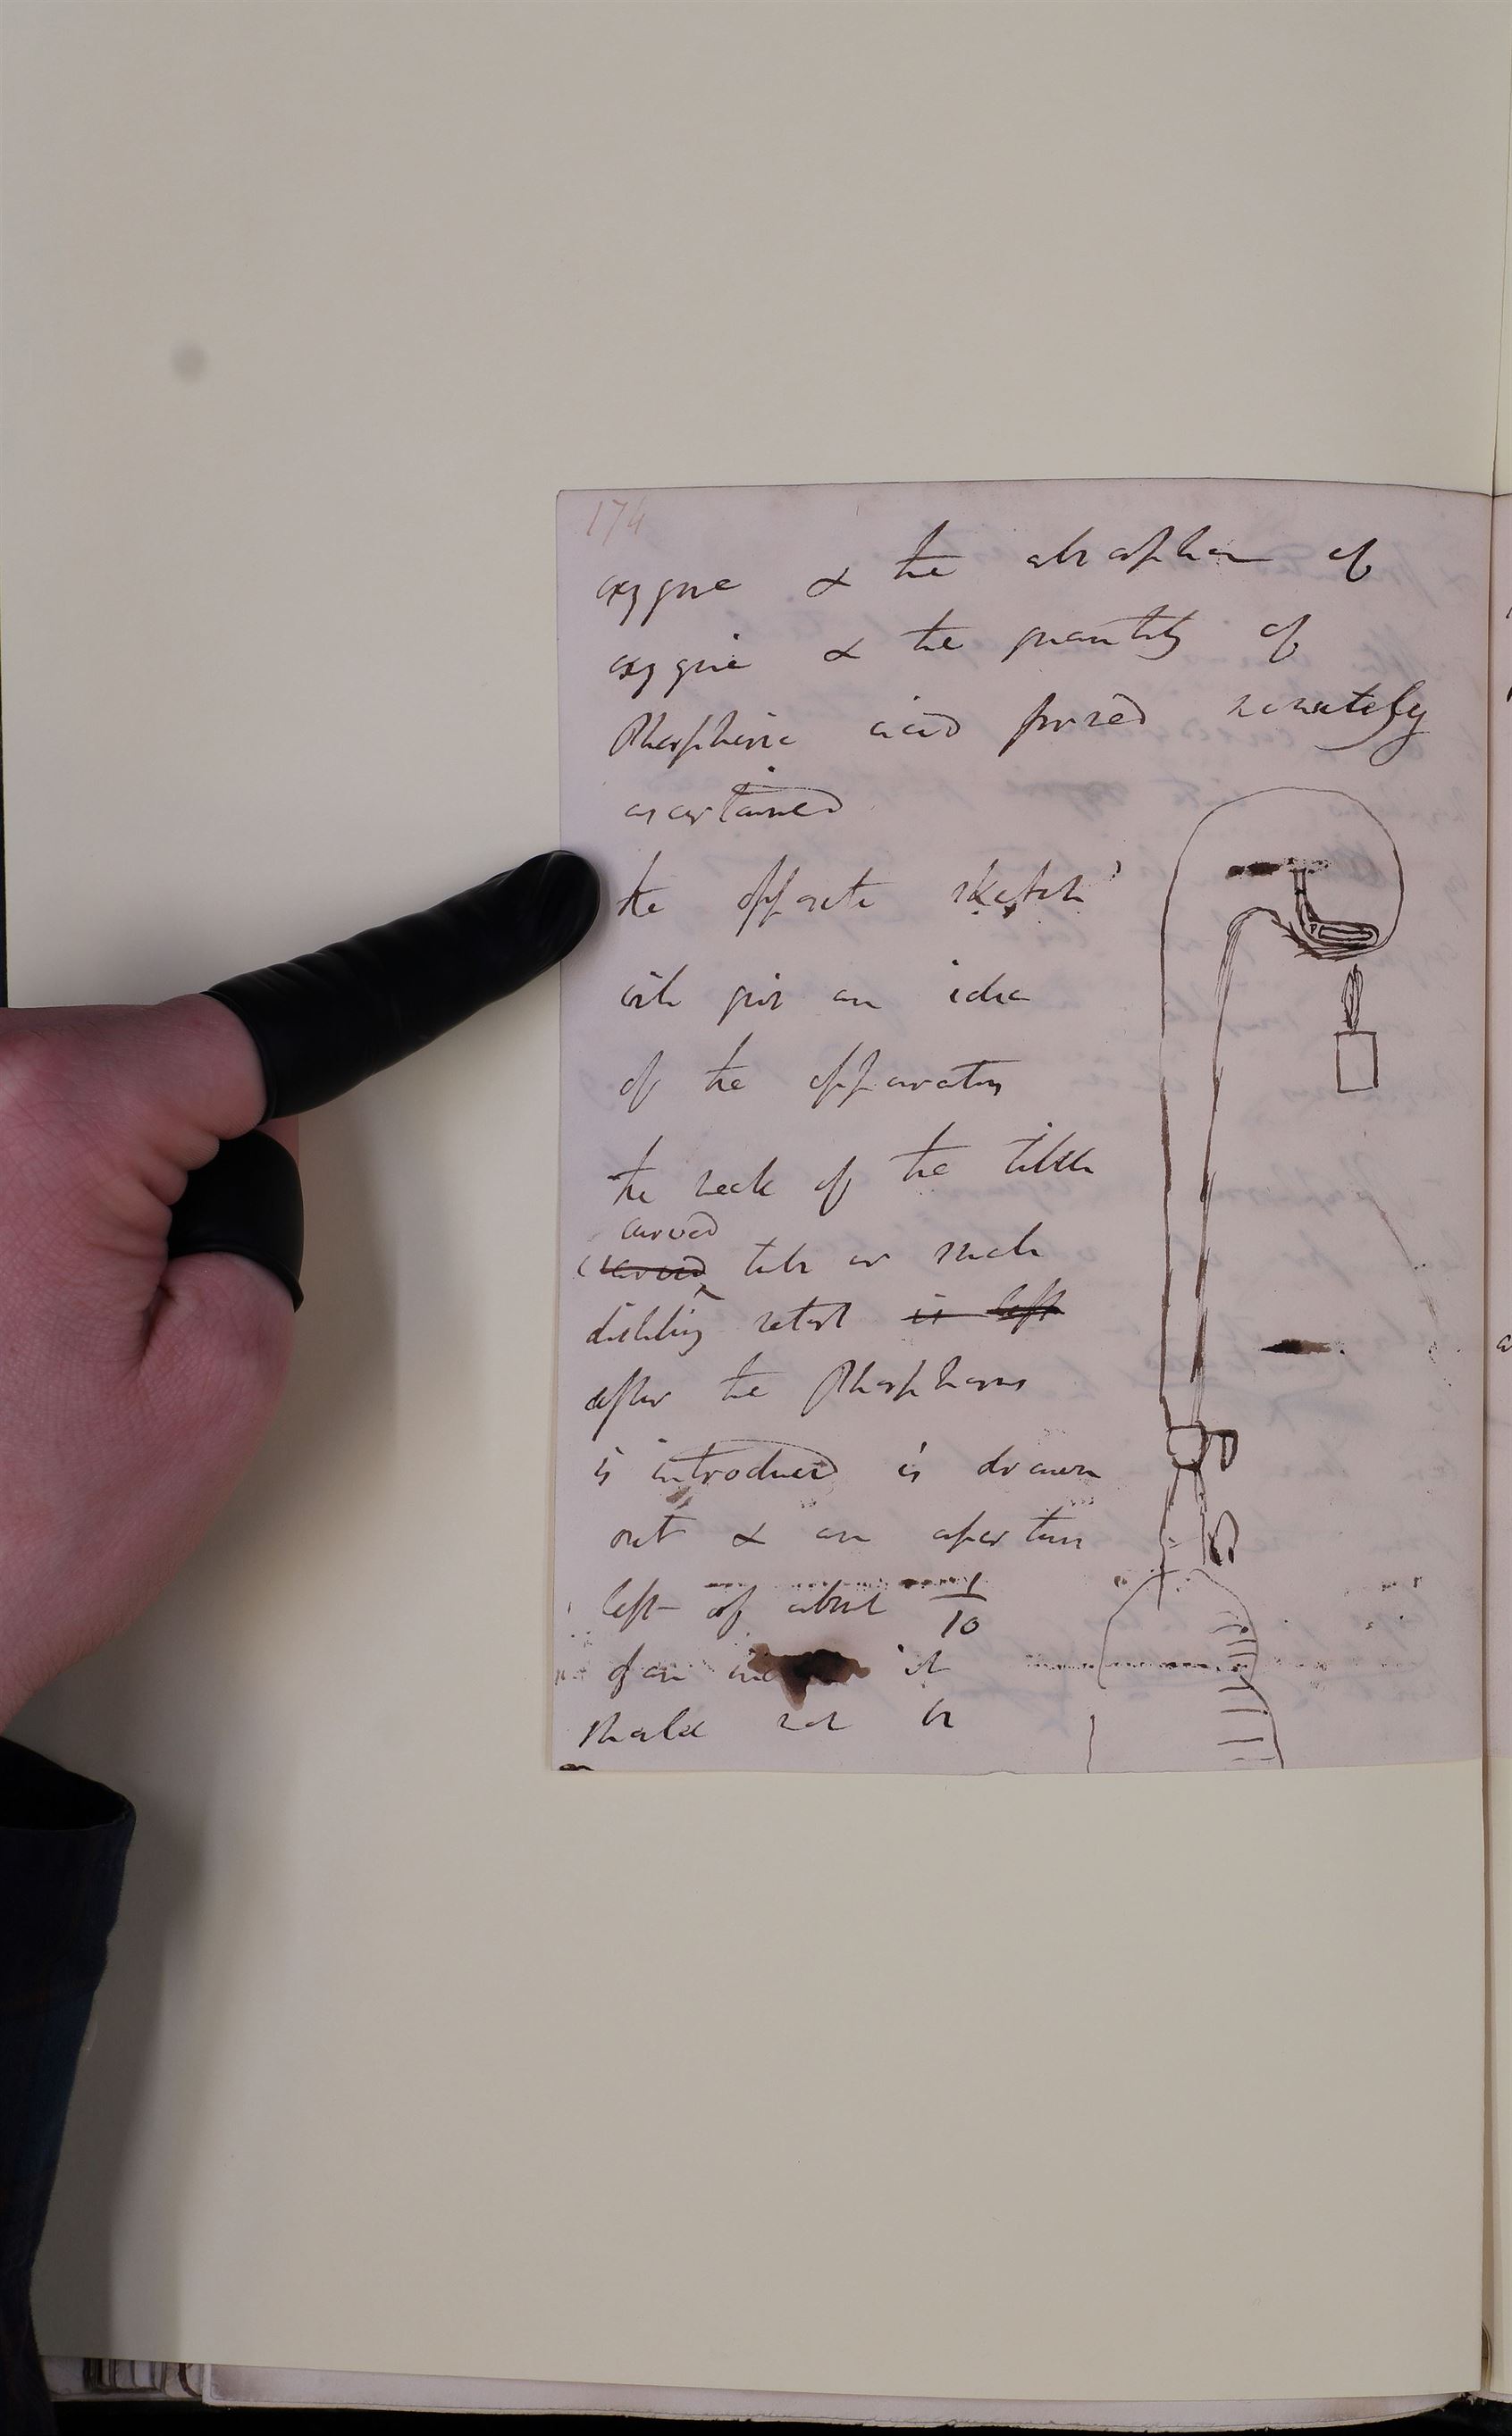 174
oxygene & the absorption of
oxygene & the quantity of
Phosphoric acid formed minutely
ascertained
the opposite sketch
will give an idea
of the apparatus
the neck of the little
curved
curved tube or such
distilling retort is left
after the Phosphorus
is introduced is drawn
out & an aperture
left of about 1/10
of an it
should not be